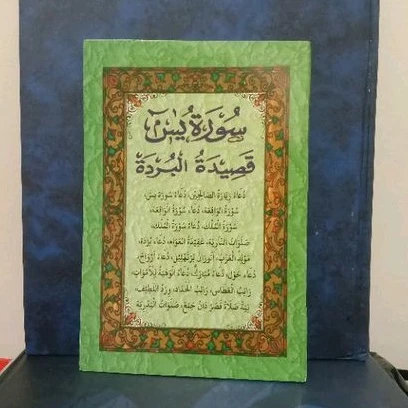 سُوْرَةُ يٰسٓ
قَصِيْدَةُ الْبُرْدَةْ
دُعَاءُ زِيَارَةِ الصَّالِحِيْنَ، دُعَاءُ سُوْرَةِ يٰسٓ،
سُوْرَةُ الْوَاقِعَة، دُعَاءُ سُوْرَةِ الْوَاقِعَة،
سُوْرَةُ الْمُلْك، دُعَاءُ سُوْرَةِ الْمُلْك،
صَلَوَاتُ النَّارِيَة، عَقِيْدَةُ الْعَوَام، دُعَاءُ بُرْدَة،
مَوْلِدُ الْعَزَب، دُعَاءُ أَرْوَاح،
دُعَاءُ حَوْل، دُعَاءُ مُبَارَك، دُعَاءُ لِلْأَمْوَات،
رَاتِبُ الْعَطَّاس، رَاتِبُ الْحَدَّاد، وِرْدُ اللَّطِيْف،
نِيَّةُ صَلَاةِ قَصَرْ دَانْ جَمَعْ، صَلَوَاتُ الْبَدْرِيَّة